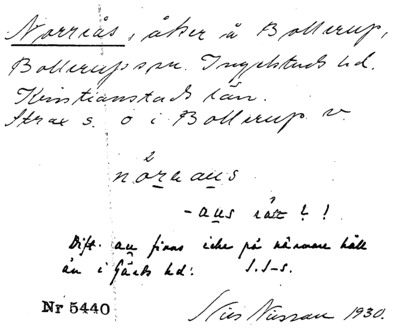 Norrås, åker å Bollerup,
Bollerups sn. Ingelstads hd.
Kristianstads län.
Strax s. o i Bollerup v.
nǒraus
-aus rätt ? !
Dift. au finns icke på närmare håll
än i Gärds hd: S.S-s.
Nr 5440 Nils Nilsson 1930.